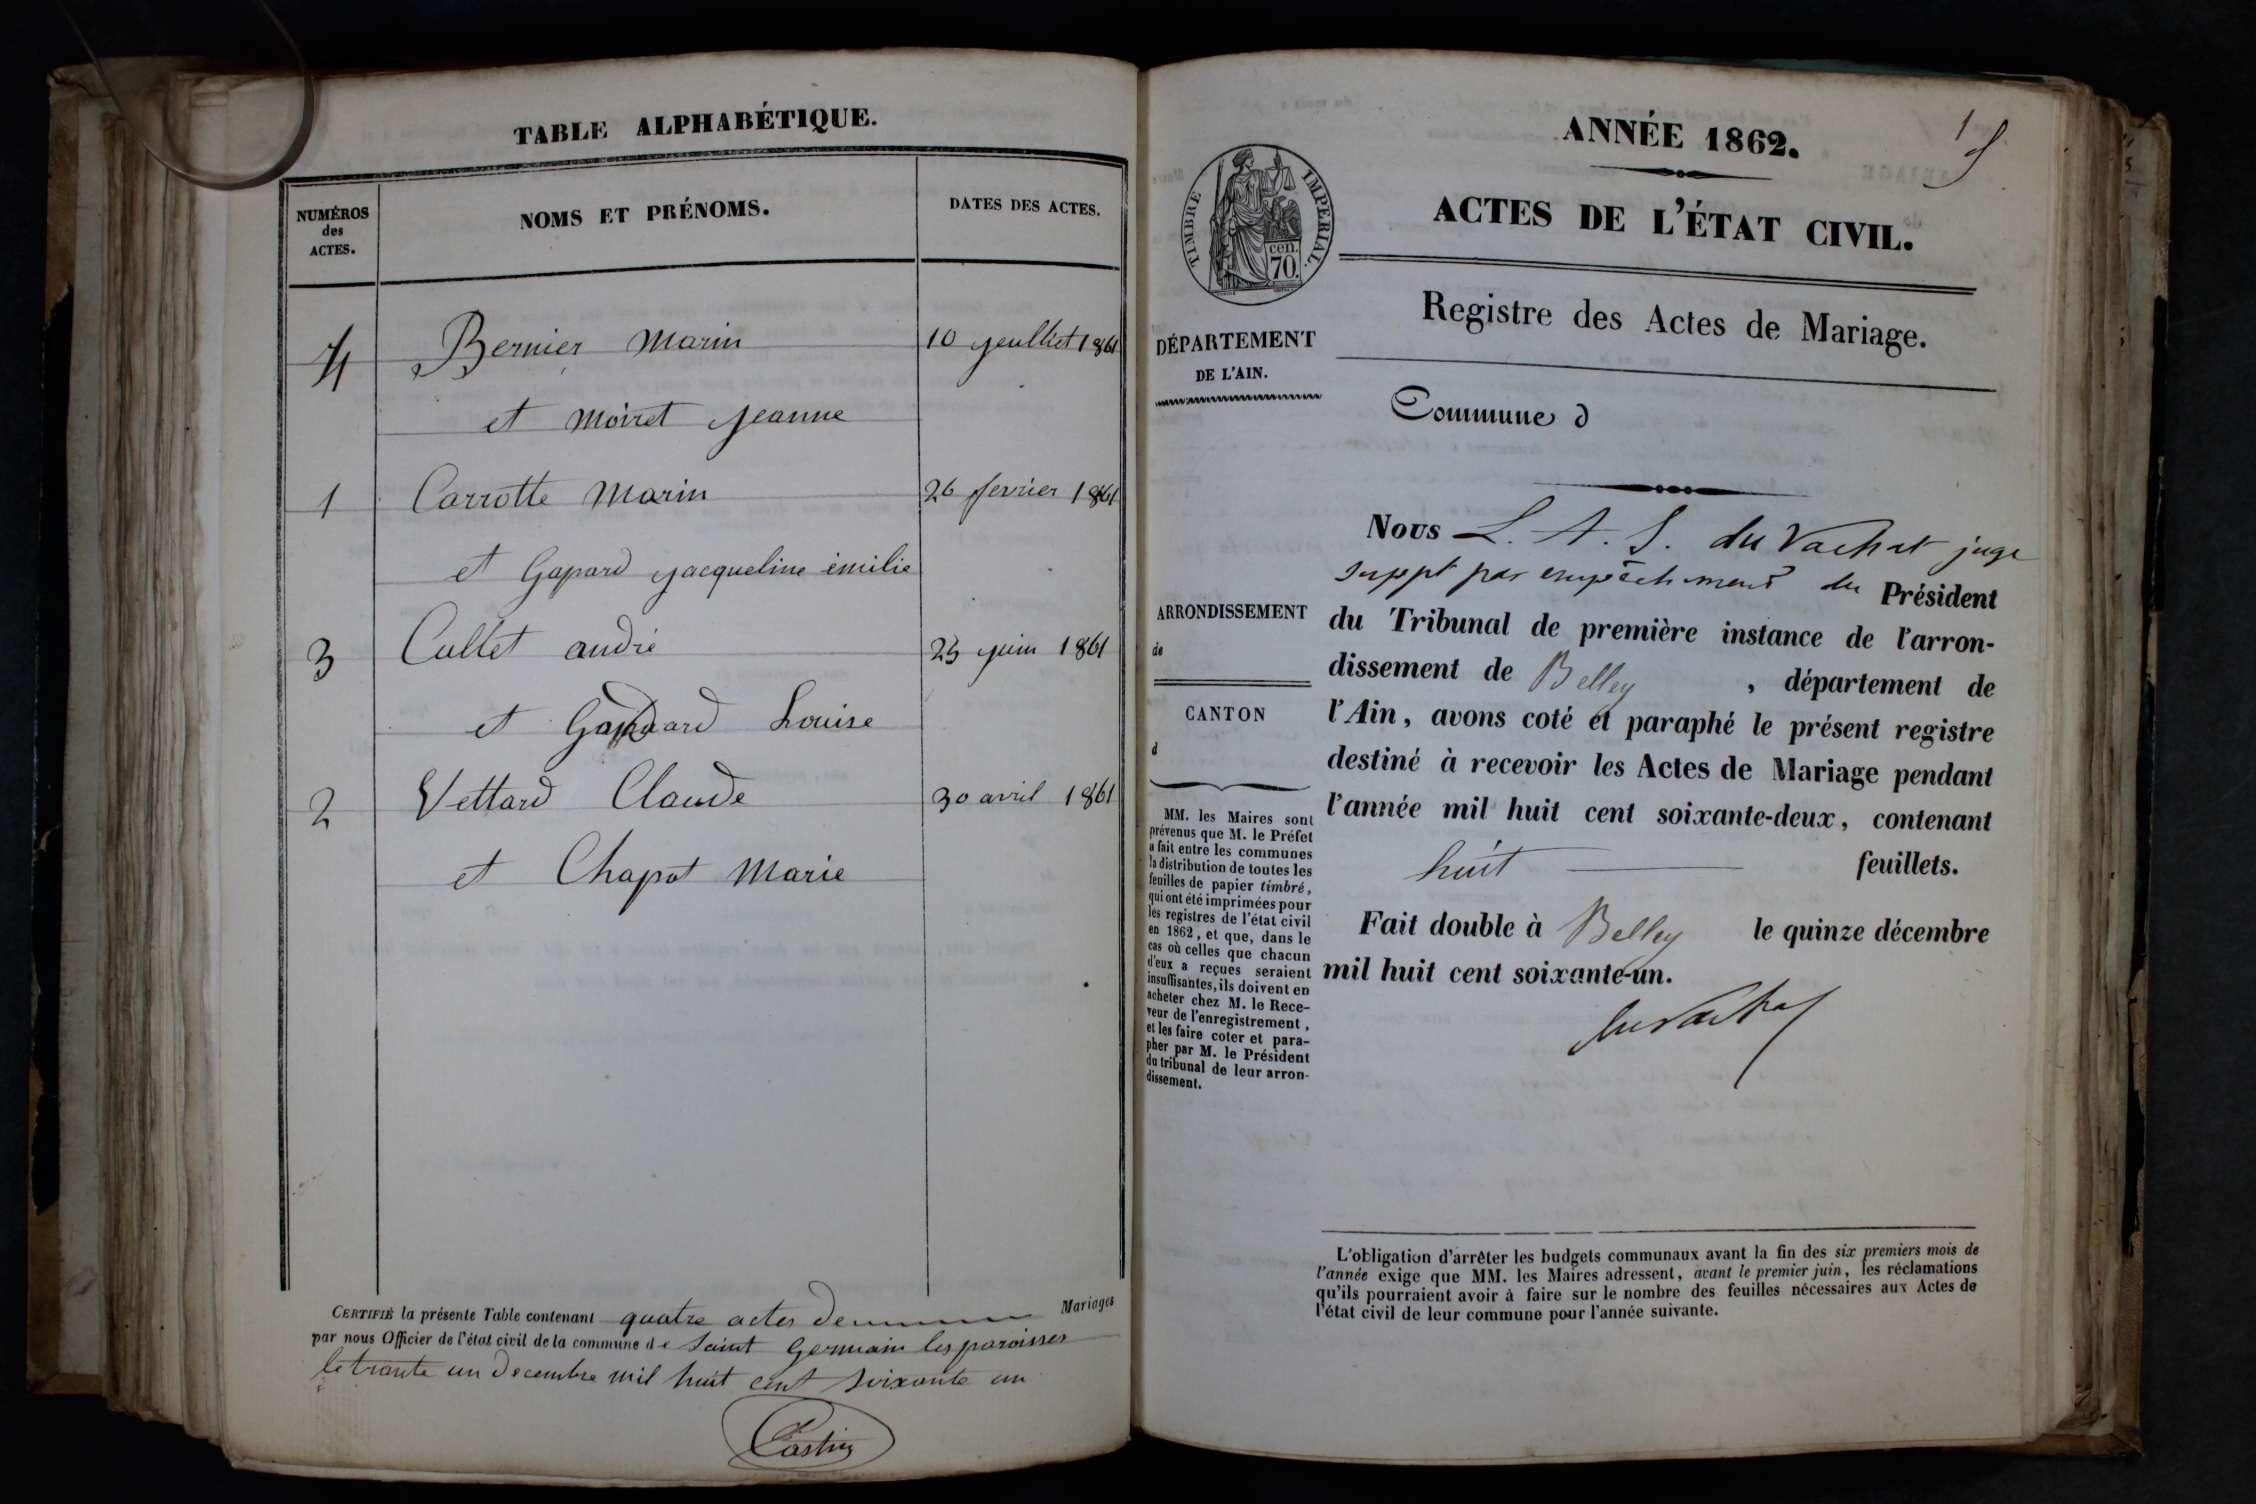 TABLE ALPHABÉTIQUE.
NUMÉROS
des
ACTES.
NOMS ET PRÉNOMS.
DATES DES ACTES.
4 Bernier Marin 10 jeulliet 1861
et Moiret Jeanne
1 Carrotte Marin 26 fevrier 1861
et Gapard Jacqueline émilie
3 Cullet andré 25 juin 1861
et Louise
2 Vettard Claude 30 avril 1861
et Chapot Marie
CERTIFIÉ la présente Table contenant quatre actes de Mariages
par nous Officier de l'état civil de la commune de Saint Germain les paroisses
le trante un decembre mil huit cent soixante un
Castin
1
ANNÉE 1862.
ACTES DE L'ÉTAT CIVIL.
TIMBRE IMPÉRIAL.
cen.
70.
Registre des Actes de Mariage.
DÉPARTEMENT
DE L'AIN.
Commune d
Nous L. A. S. du Vachat juge
suppt par empêchement du Président
ARRONDISSEMENT
de
CANTON
d
du Tribunal de première instance de l'arron-
dissement de Belley , département de
l'Ain, avons coté et paraphé le présent registre
destiné à recevoir les Actes de Mariage pendant
l'année mil huit cent soixante-deux, contenant
huit feuillets.
Fait double à Belley le quinze décembre
mil huit cent soixante-un.
du Vachat
MM. les Maires sont
prévenus que M. le Préfet
a fait entre les communes
la distribution de toutes les
feuilles de papier timbré,
qui ont été imprimées pour
les registres de l'état civil
en 1862, et que, dans le
cas où celles que chacun
d'eux a reçues seraient
insuffisantes, ils doivent en
acheter chez M. le Rece-
veur de l'enregistrement,
et les faire coter et para-
pher par M. le Président
du tribunal de leur arron-
dissement.
L'obligation d'arrêter les budgets communaux avant la fin des six premiers mois de
l'année exige que MM. les Maires adressent, avant le premier juin, les réclamations
qu'ils pourraient avoir à faire sur le nombre des feuilles nécessaires aux Actes de
l'état civil de leur commune pour l'année suivante.